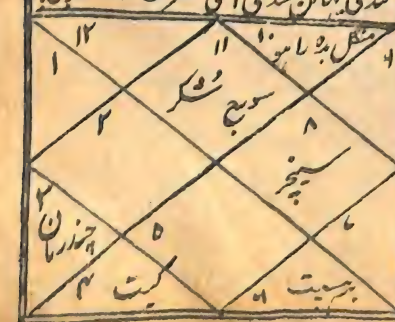 ۱۲
۱۱
۱۰
منگل بدہ راہو
۹
۱
۲
سورج شکر
۸
سنیچر
۳
چندرمان
۵
۷
۴
کیت
۶
برسپت